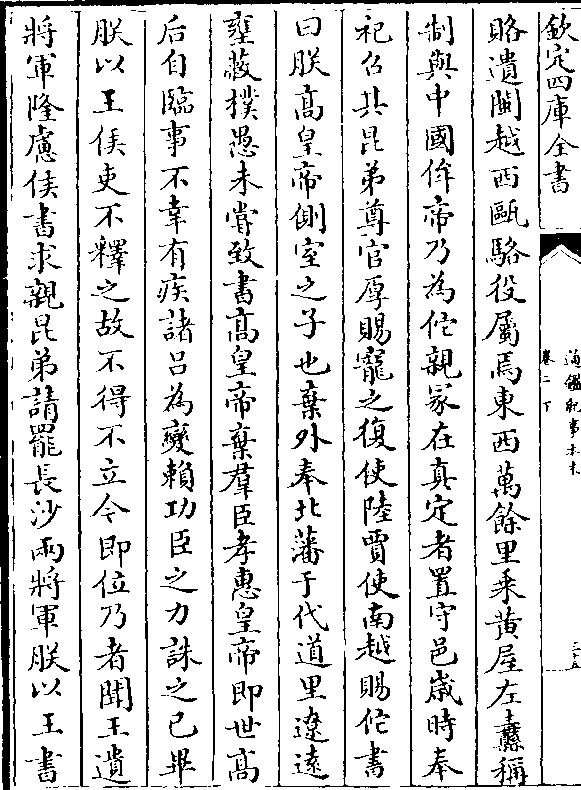 欽定四庫全書
通鑑紀事本末
卷二下
三五
賂遺閩越西甌駱役屬焉東西萬餘里乘黄屋左纛稱
制與中國侔帝乃為佗親冢在真定者置守邑嵗時奉
祀召其昆弟尊官厚賜寵之復使陸賈使南越賜佗書
曰朕高皇帝側室之子也棄外奉北藩于代道里遼逺
壅蔽樸愚未嘗致書高皇帝棄羣臣孝惠皇帝即世高
后自臨事不幸有疾諸吕為變賴功臣之力誅之已畢
朕以王侯吏不釋之故不得不立今即位乃者聞王遺
將軍隆慮侯書求親昆弟請罷長沙兩將軍朕以王書